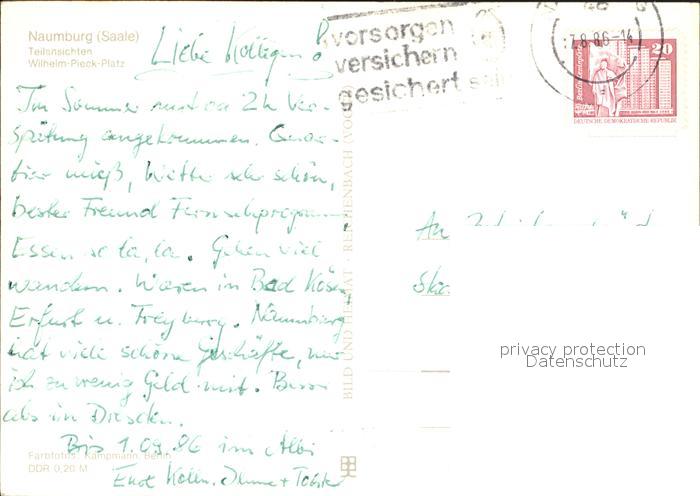 Naumburg (Saale)
Teilansichten
Wilhelm-Pieck-Platz
vorsorgen
versichern
gesichert sei
7.8.86-14
20
DEUTSCHE DEMOKRATISCHE REPUBLIK
Liebe Kollegen!
Im Sommer mit ca 2h Ver-
spätung angekommen. Quar-
tier mieß, Wetter sehr schön,
bester Freund Fernsehprogramm,
Essen so la, la. Gehen viel
wandern. Waren in Bad Kösen,
Erfurt u. Freyburg. Naumburg
hat viele schöne Geschäfte, nur
ich zu wenig Geld mit. Besser
als in Dresden.
Bis 1.09.86 im Albi
Eure Kolln.
An
BILD UND HEIMAT · REICHENBACH (VOGTL
privacy protection
Datenschutz
Farbfotos: Kampmann, Berlin
DDR 0,20 M